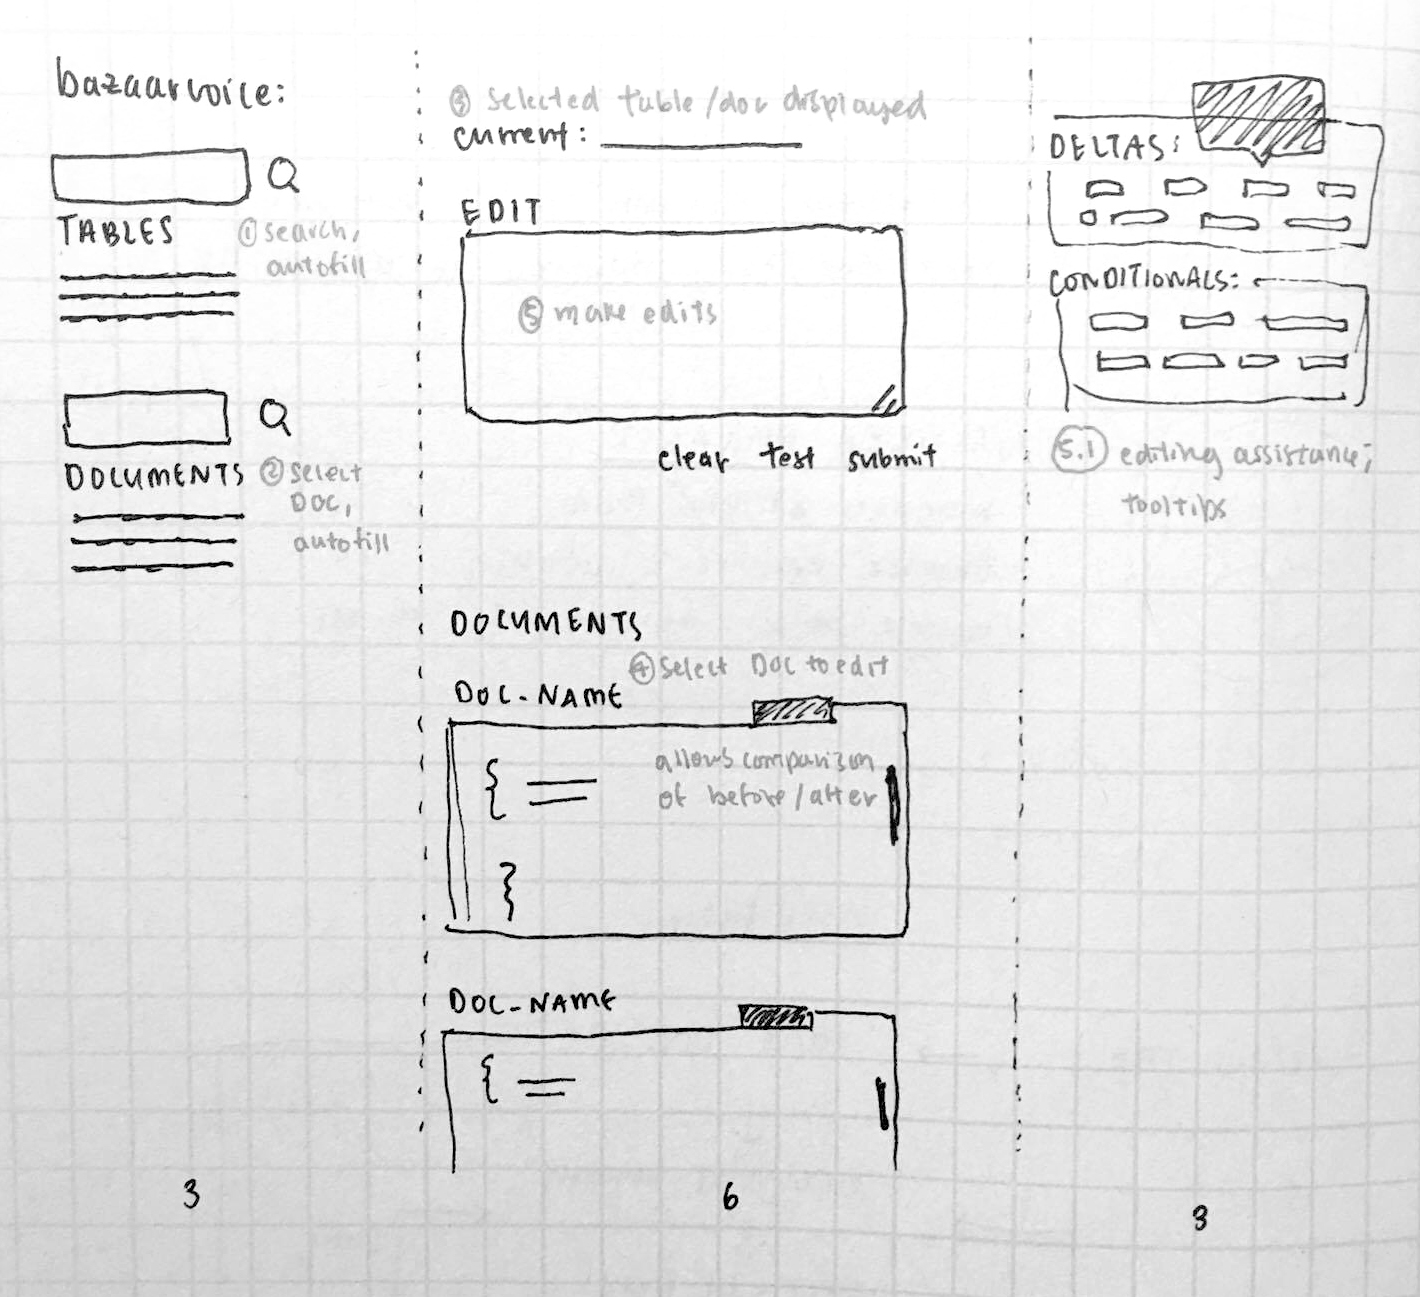 bazaarvoice:
TABLES
① search,
autofill
DOCUMENTS
② select
DOC,
autofill
3
③ selected table/doc displayed
current:
EDIT
⑤ make edits
clear test submit
DOCUMENTS
④ select DOC to edit
DOC-NAME
{
allows comparison
of before/after
}
DOC-NAME
{
6
DELTAS:
CONDITIONALS:
5.1 editing assistance;
tooltips
3